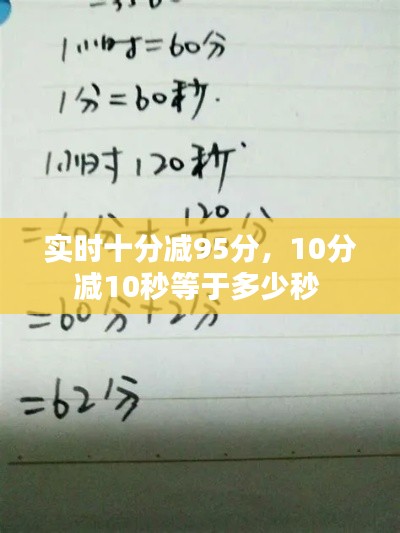 1小时=60分
1分=60秒.
1小时120秒
实时十分减95分，10分
减10秒等于多少秒
=60分+2分
=62分